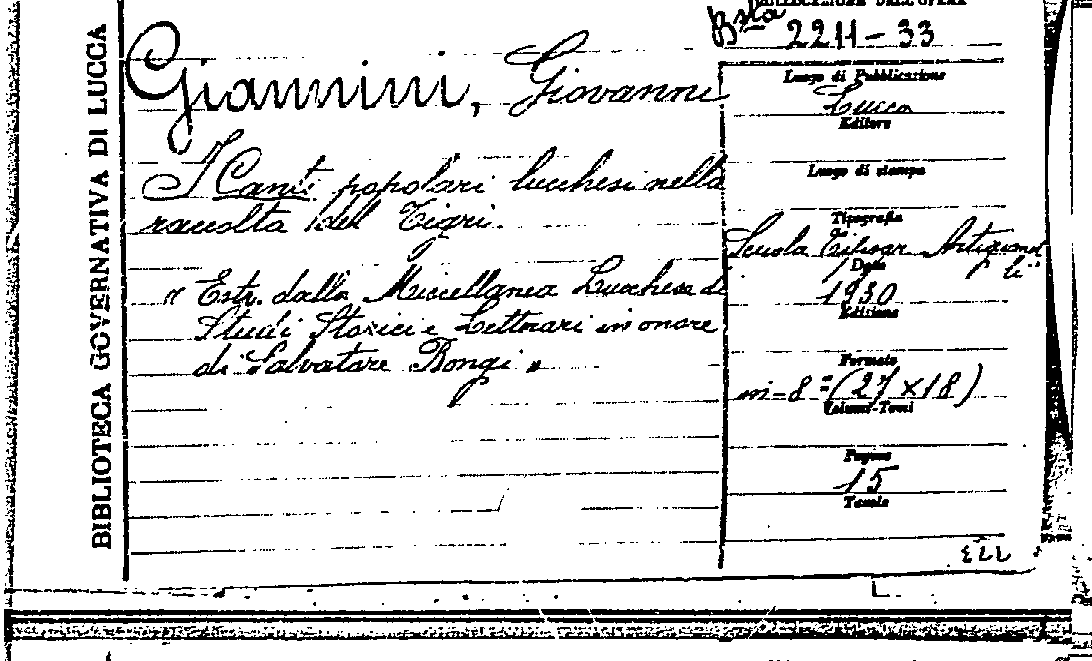 BIBLIOTECA GOVERNATIVA DI LUCCA
COLLOCAZIONE DELL'OPERA
Bsta 2211-33
Giannini, Giovanni
I Canti popolari lucchesi nella
raccolta del Tigri.
"Estr. dalla Miscellanea Lucchese di
Studi Storici e Letterari in onore
di Salvatore Bongi"
Luogo di Pubblicazione
Lucca
Editore
Luogo di stampa
Tipografia
Scuola Artigianel
li"
Data
1930
Edizione
Formato
in-8° (27 x 18)
Volumi-Tomi
Pagine
15
Tavole